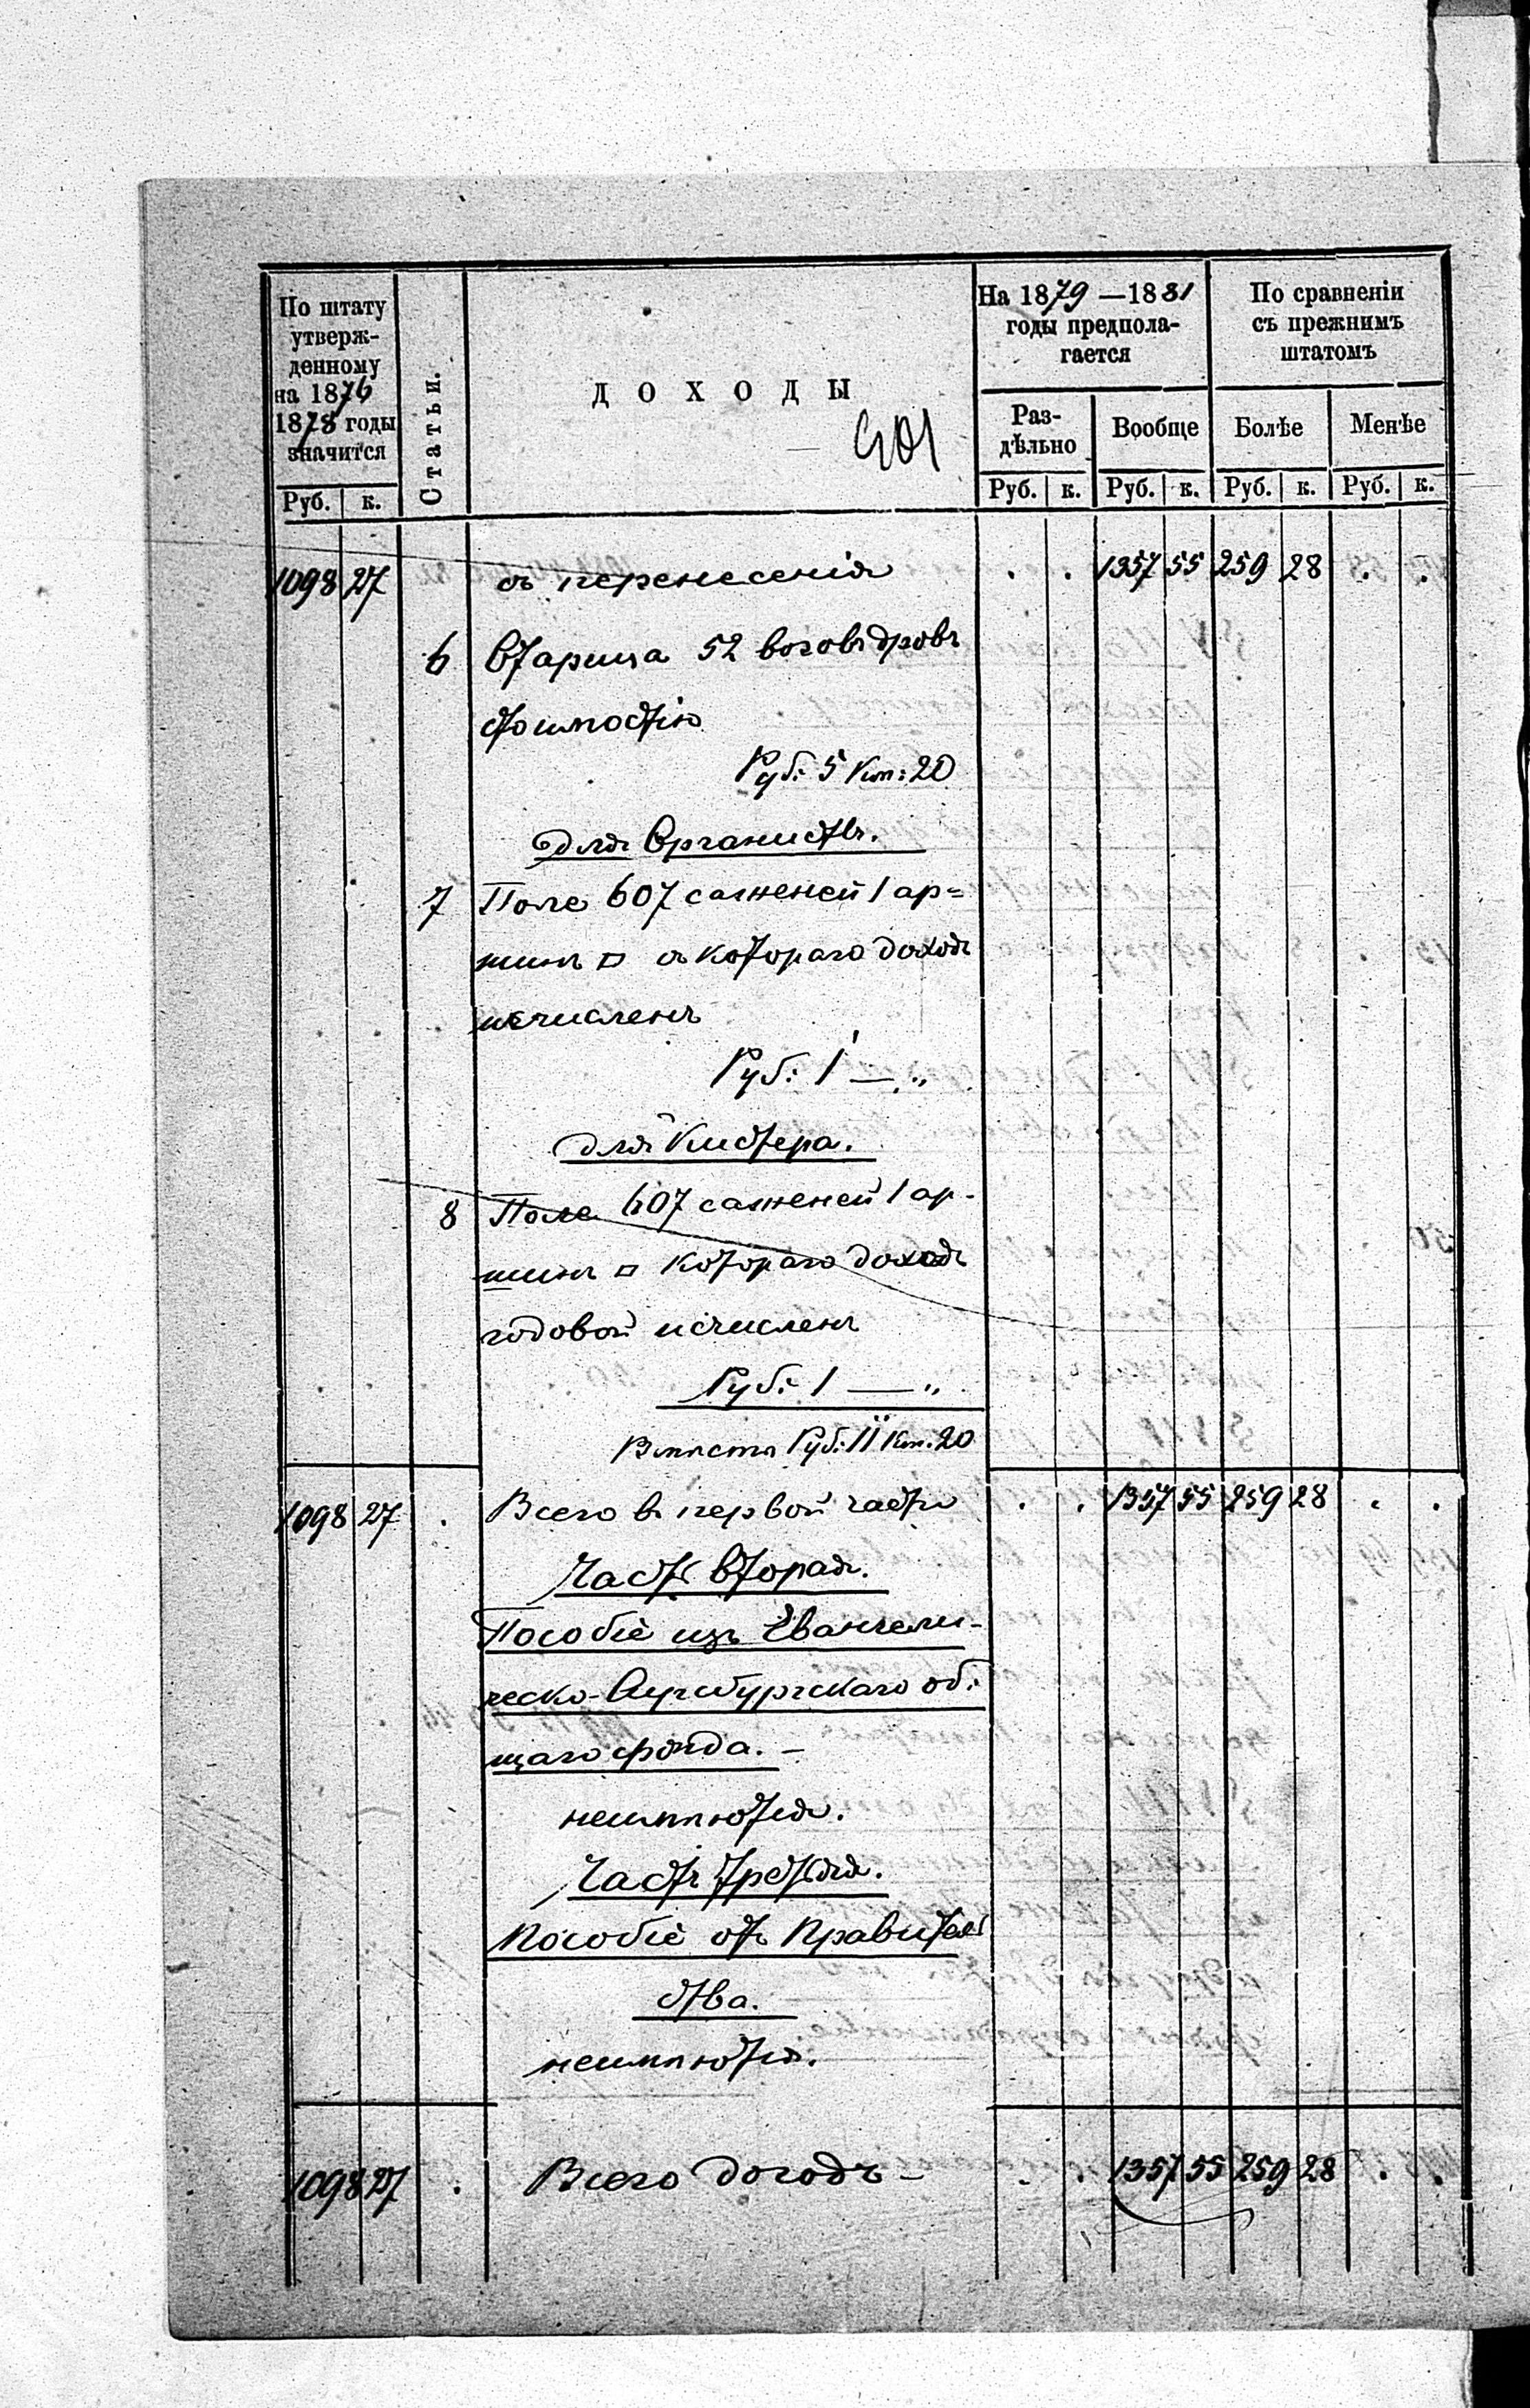 По штату
утверж-
денному
на 1876
1878 годы
значится
Руб. к.
Статьи.
ДОХОДЫ
401
На 1879 —1881
годы предпола-
гается
Раз-
дѣльно
Вообще
Руб. к. Руб. к.
По сравненіи
съ прежнимъ
штатомъ
Болѣе
Менѣе
Руб. к. Руб. к.
1098 27 съ перенесенія . . 1357 55 259 28 . .
6 52 возовъ дровъ
стоимостію
Руб: 5 Коп: 20
для Органиста.
7 Поле 607 саженей 1 ар=
шинъ □ съ котораго доходъ
исчисленъ
Руб: 1 — „
для Кистера.
8 Поле 607 саженей 1 ар-
шинъ □ котораго доходъ
годовой исчисленъ
Руб: 1 — „
Вмѣстѣ Руб: 11 Коп. 20
1098 27 . Всего въ первой части . . 1357 55 259 28 . .
Часть вторая.
Пособіе изъ Евангели-
ческо-Аугсбургскаго об:
щаго фонда. —
неимѣются.
Часть третья.
Пособіе отъ Правитель
ства.
неимѣются.
1098 27 . Всего доходъ — . . 1357 55 259 28 . .